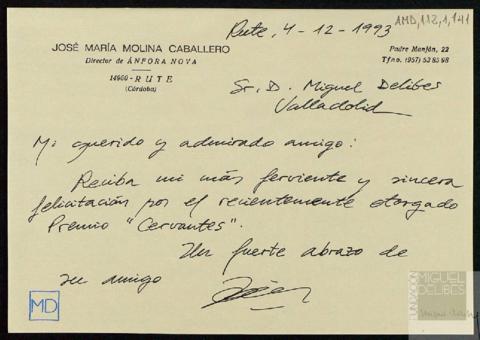 Rute, 4-12-1993
AMD,112,1,141
JOSÉ MARÍA MOLINA CABALLERO
Director de ÁNFORA NOVA
14960 - RUTE
(Córdoba)
Padre Manjón, 22
Tfno. (957) 53 85 98
Sr. D. Miguel Delibes
Valladolid
Mi querido y admirado amigo:
Reciba mi más ferviente y sincera
felicitación por el recientemente otorgado
Premio "Cervantes".
Un fuerte abrazo de
su amigo
MD
FUNDACIÓN
MIGUEL
DELIBES